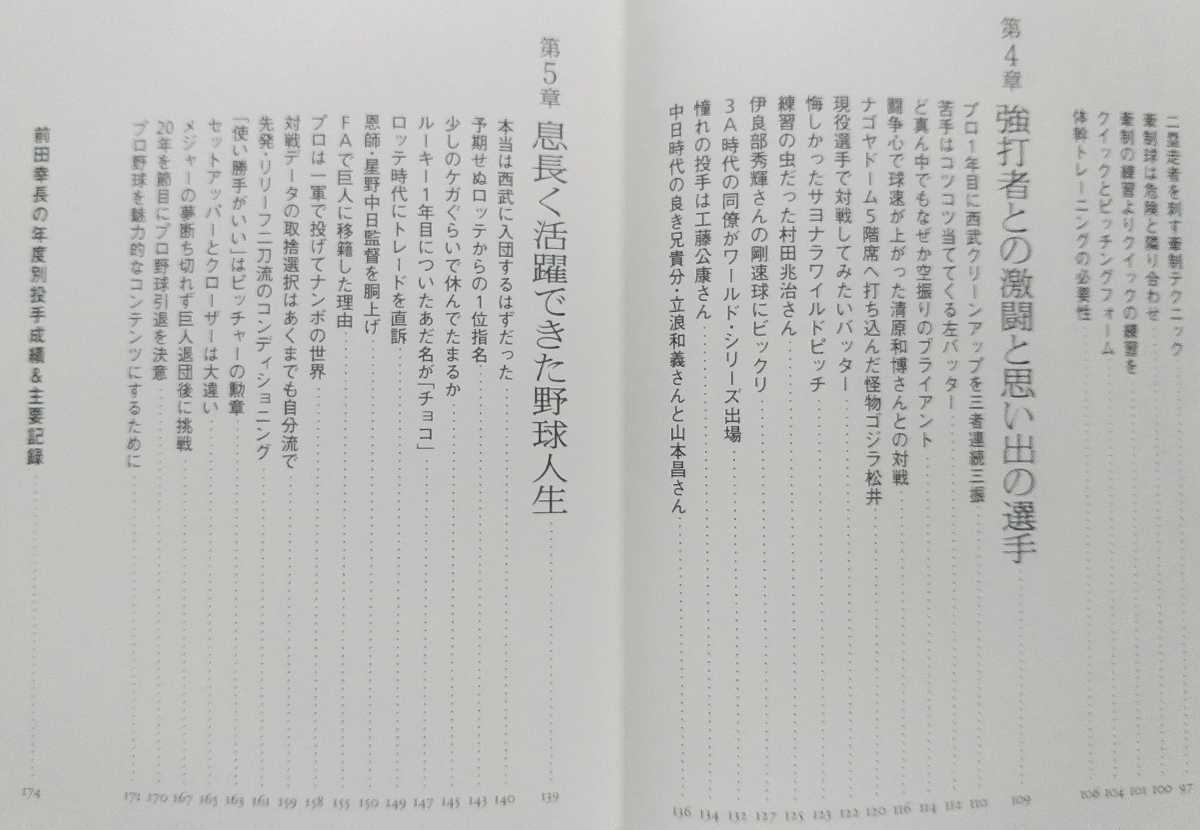 二塁走者を刺す牽制テクニック 97
牽制球は危険と隣り合わせ 100
牽制の練習よりクイックの練習を 101
クイックとピッチングフォーム 104
体幹トレーニングの必要性 106
第4章 強打者との激闘と思い出の選手 109
プロ1年目に西武クリーンアップを三者連続三振 110
苦手はコツコツ当ててくる左バッター 112
ど真ん中でもなぜか空振りのブライアント 114
闘争心で球速が上がった清原和博さんとの対戦 116
ナゴヤドーム5階席へ打ち込んだ怪物ゴジラ松井 120
現役選手で対戦してみたいバッター 122
悔しかったサヨナラワイルドピッチ 123
練習の虫だった村田兆治さん 125
伊良部秀輝さんの剛速球にビックリ 127
3A時代の同僚がワールド・シリーズ出場 132
憧れの投手は工藤公康さん 134
中日時代の良き兄貴分・立浪和義さんと山本昌さん 136
第5章 息長く活躍できた野球人生 139
本当は西武に入団するはずだった 140
予期せぬロッテからの1位指名 143
少しのケガぐらいで休んでたまるか 145
ルーキー1年目についたあだ名が「チョコ」 147
ロッテ時代にトレードを直訴 149
恩師・星野中日監督を胴上げ 150
FAで巨人に移籍した理由 155
プロは一軍で投げてナンボの世界 158
対戦データの取捨選択はあくまでも自分流で 159
先発・リリーフ二刀流のコンディショニング 161
「使い勝手がいい」はピッチャーの勲章 163
セットアッパーとクローザーは大違い 165
メジャーの夢断ち切れず巨人退団後に挑戦 167
20年を節目にプロ野球引退を決意 170
プロ野球を魅力的なコンテンツにするために 171
前田幸長の年度別投手成績&主要記録 174